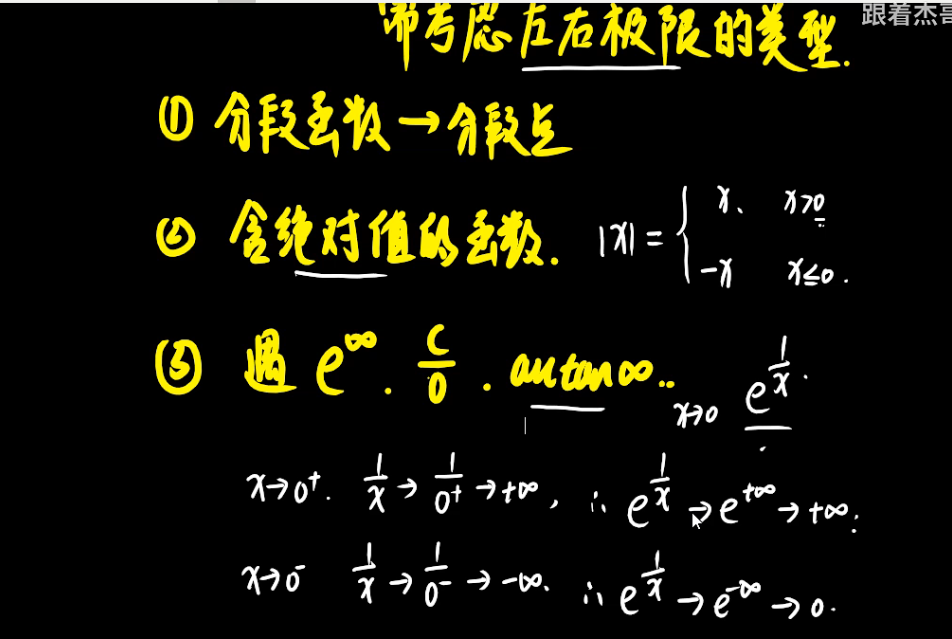 跟着杰哥
需考虑左右极限的类型.
① 分段函数→分段点
② 含绝对值的函数. |x| = { x, x>0
-x x≤0.
③ 遇 e^∞ . C/0 . arctan∞..
x→0 e^(1/x).
x→0⁺. 1/x → 1/0⁺ → +∞, ∴ e^(1/x) → e^(+∞) → +∞;
x→0⁻ 1/x → 1/0⁻ → -∞. ∴ e^(1/x) → e^(-∞) → 0.